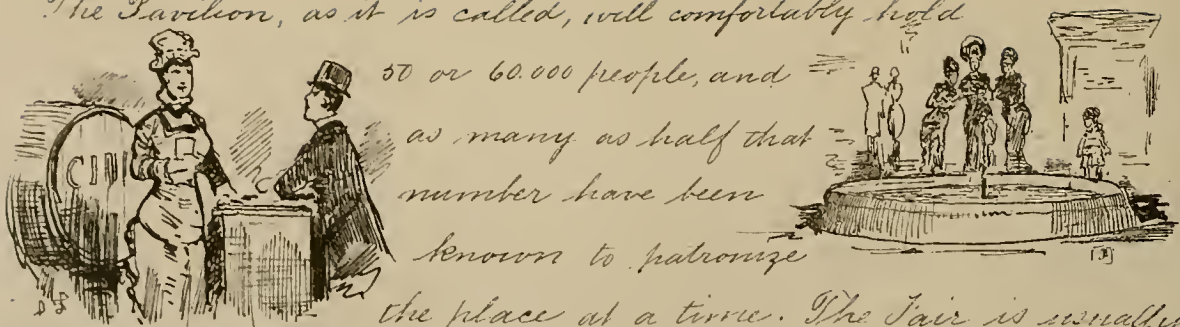 The Pavilion, as it is called, will comfortably hold
50 or 60.000 people, and
as many as half that
number have been
known to patronize
the place at a time. The Fair is usually
CIN